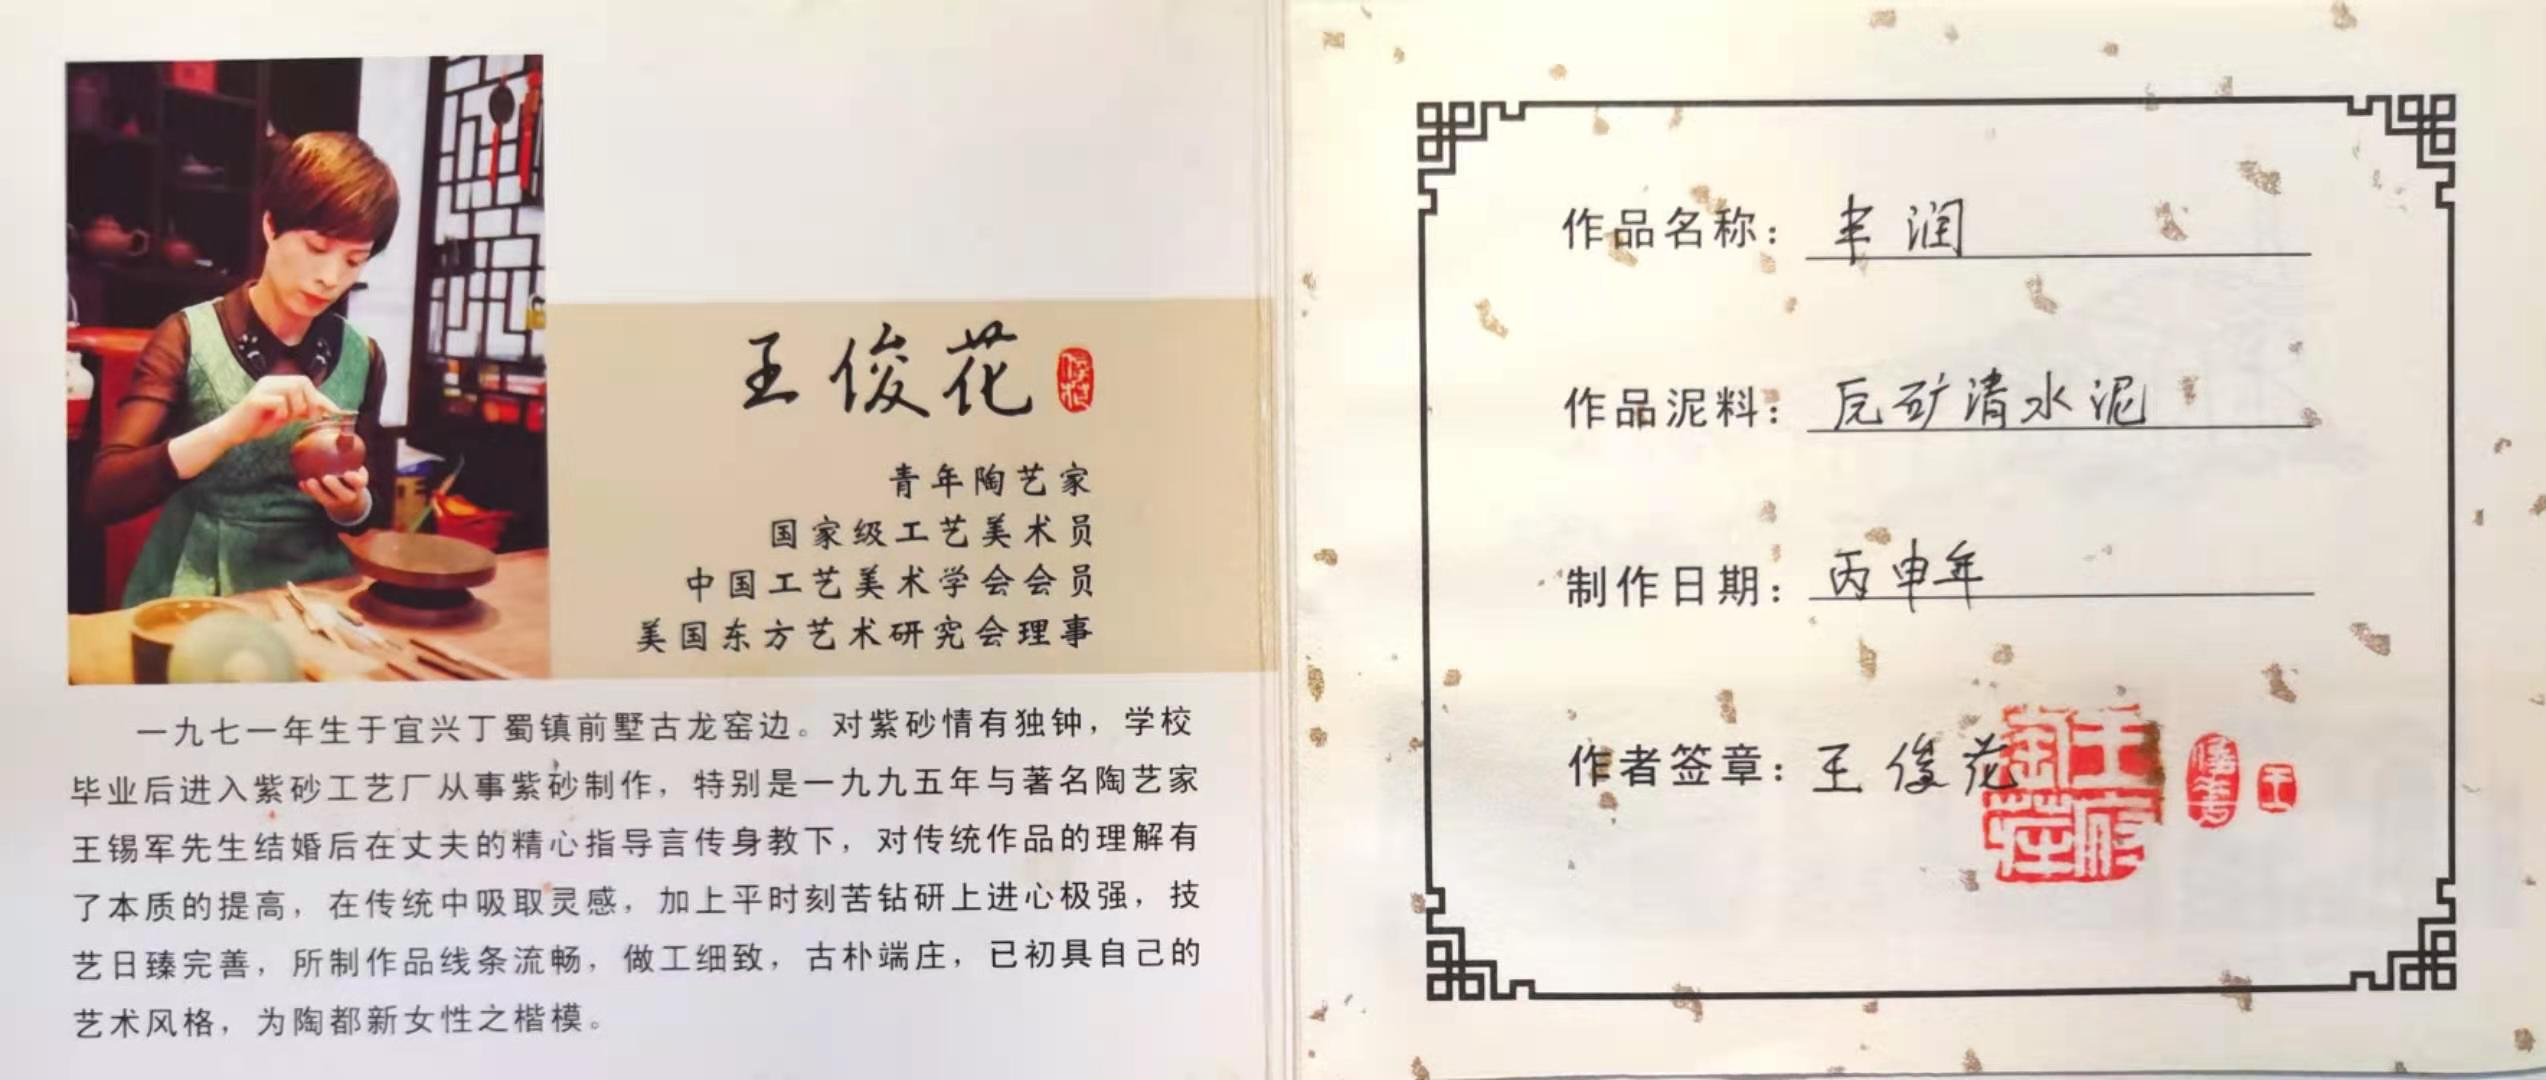 王俊花
俊花
青年陶艺家
国家级工艺美术员
中国工艺美术学会会员
美国东方艺术研究会理事
一九七一年生于宜兴丁蜀镇前墅古龙窑边。对紫砂情有独钟，学校
毕业后进入紫砂工艺厂从事紫砂制作，特别是一九九五年与著名陶艺家
王锡军先生结婚后在丈夫的精心指导言传身教下，对传统作品的理解有
了本质的提高，在传统中吸取灵感，加上平时刻苦钻研上进心极强，技
艺日臻完善，所制作品线条流畅，做工细致，古朴端庄，已初具自己的
艺术风格，为陶都新女性之楷模。
作品名称：丰润
作品泥料：反矿清水泥
制作日期：丙申年
作者签章：王俊花
王